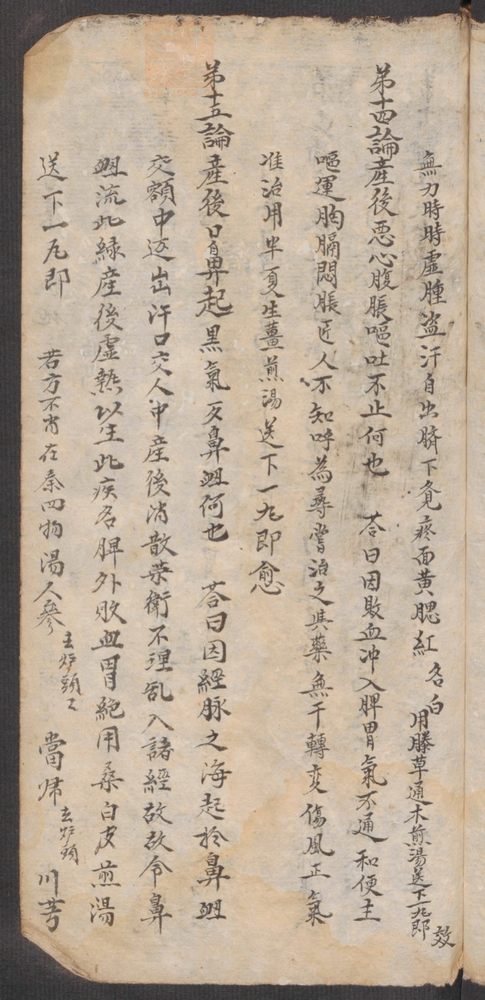 無力時時虛腫盗汗自出臍下覓疼面黃腮紅名白用滕草通木煎湯送下一丸即效
第十四論產後惡心腹脹嘔吐不止何也 荅曰因敗血冲入脾胃氣不通和便主
嘔運胸膈悶脹匠人不知呼為尋常治之其藥無干轉变傷風正氣
准治用半夏生薑煎湯送下一丸即愈
第十五論產後口鼻起黑氣及鼻衄何也 荅曰因經脉之海起於鼻衄
交額中还出汗口交人中產後消散荣衛不理乱入諸經故故令鼻
衄流此緣產後虛熱以生此疾名脾外敗血胃絕用桑白皮煎湯
送下一丸即 若方不肯在秦四物湯人參去炉頭 當帰去炉頭 川芎